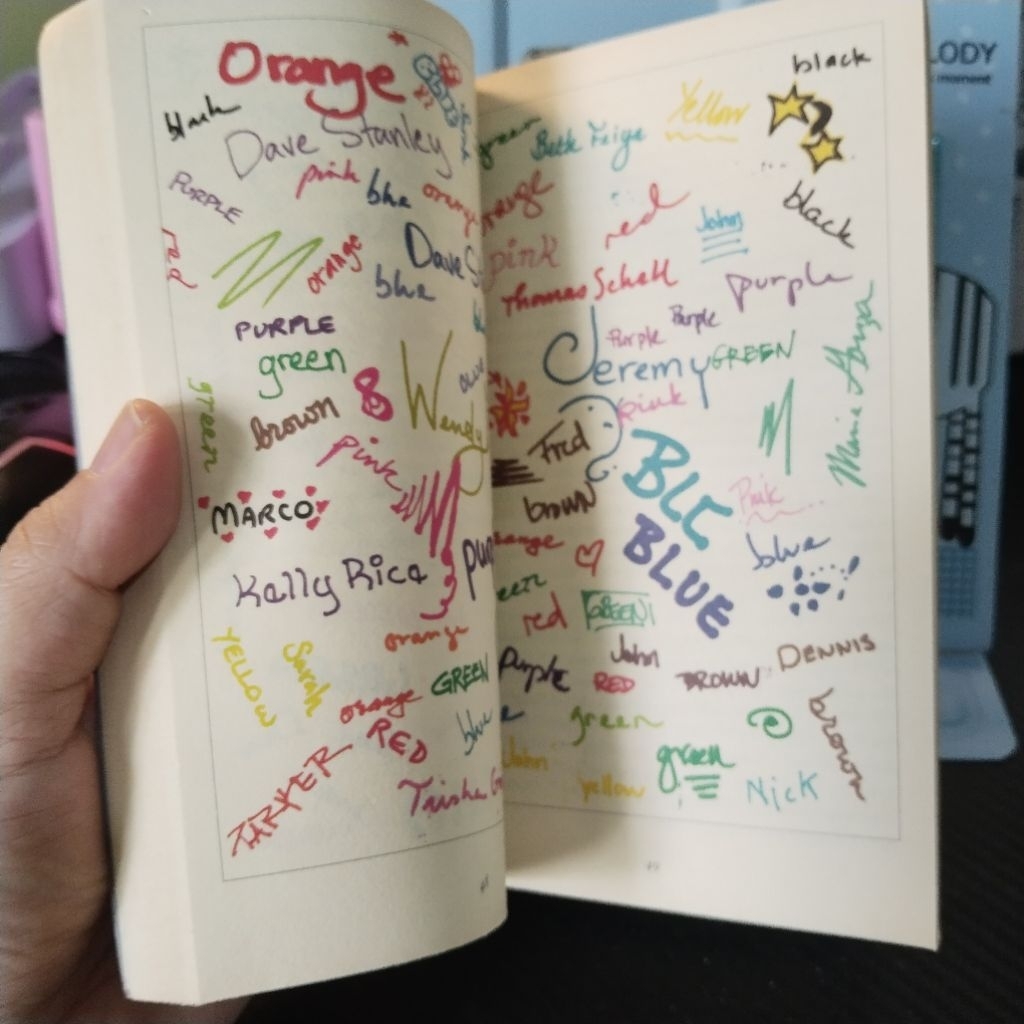 Orange
black
Dave Stanley
pink
blue
orange
PURPLE
red
orange
Dave S
blue
PURPLE
green
green
8
Wendy
Brown
pink
MARCO
Kelly Rice
pur
orange
YELLOW
Sarah
GREEN
orange
blue
RED
Trisha G
black
Yellow
green
Beth Feige
orange
red
John
black
pink
Thomas Schell
purple
Purple
Purple
Jeremy
GREEN
pink
Fred
BLC
Pink
brown
BLUE
blue
range
een
red
GREEN
John
Purple
RED
BROWN
DENNIS
e
green
brown
John
green
yellow
Nick